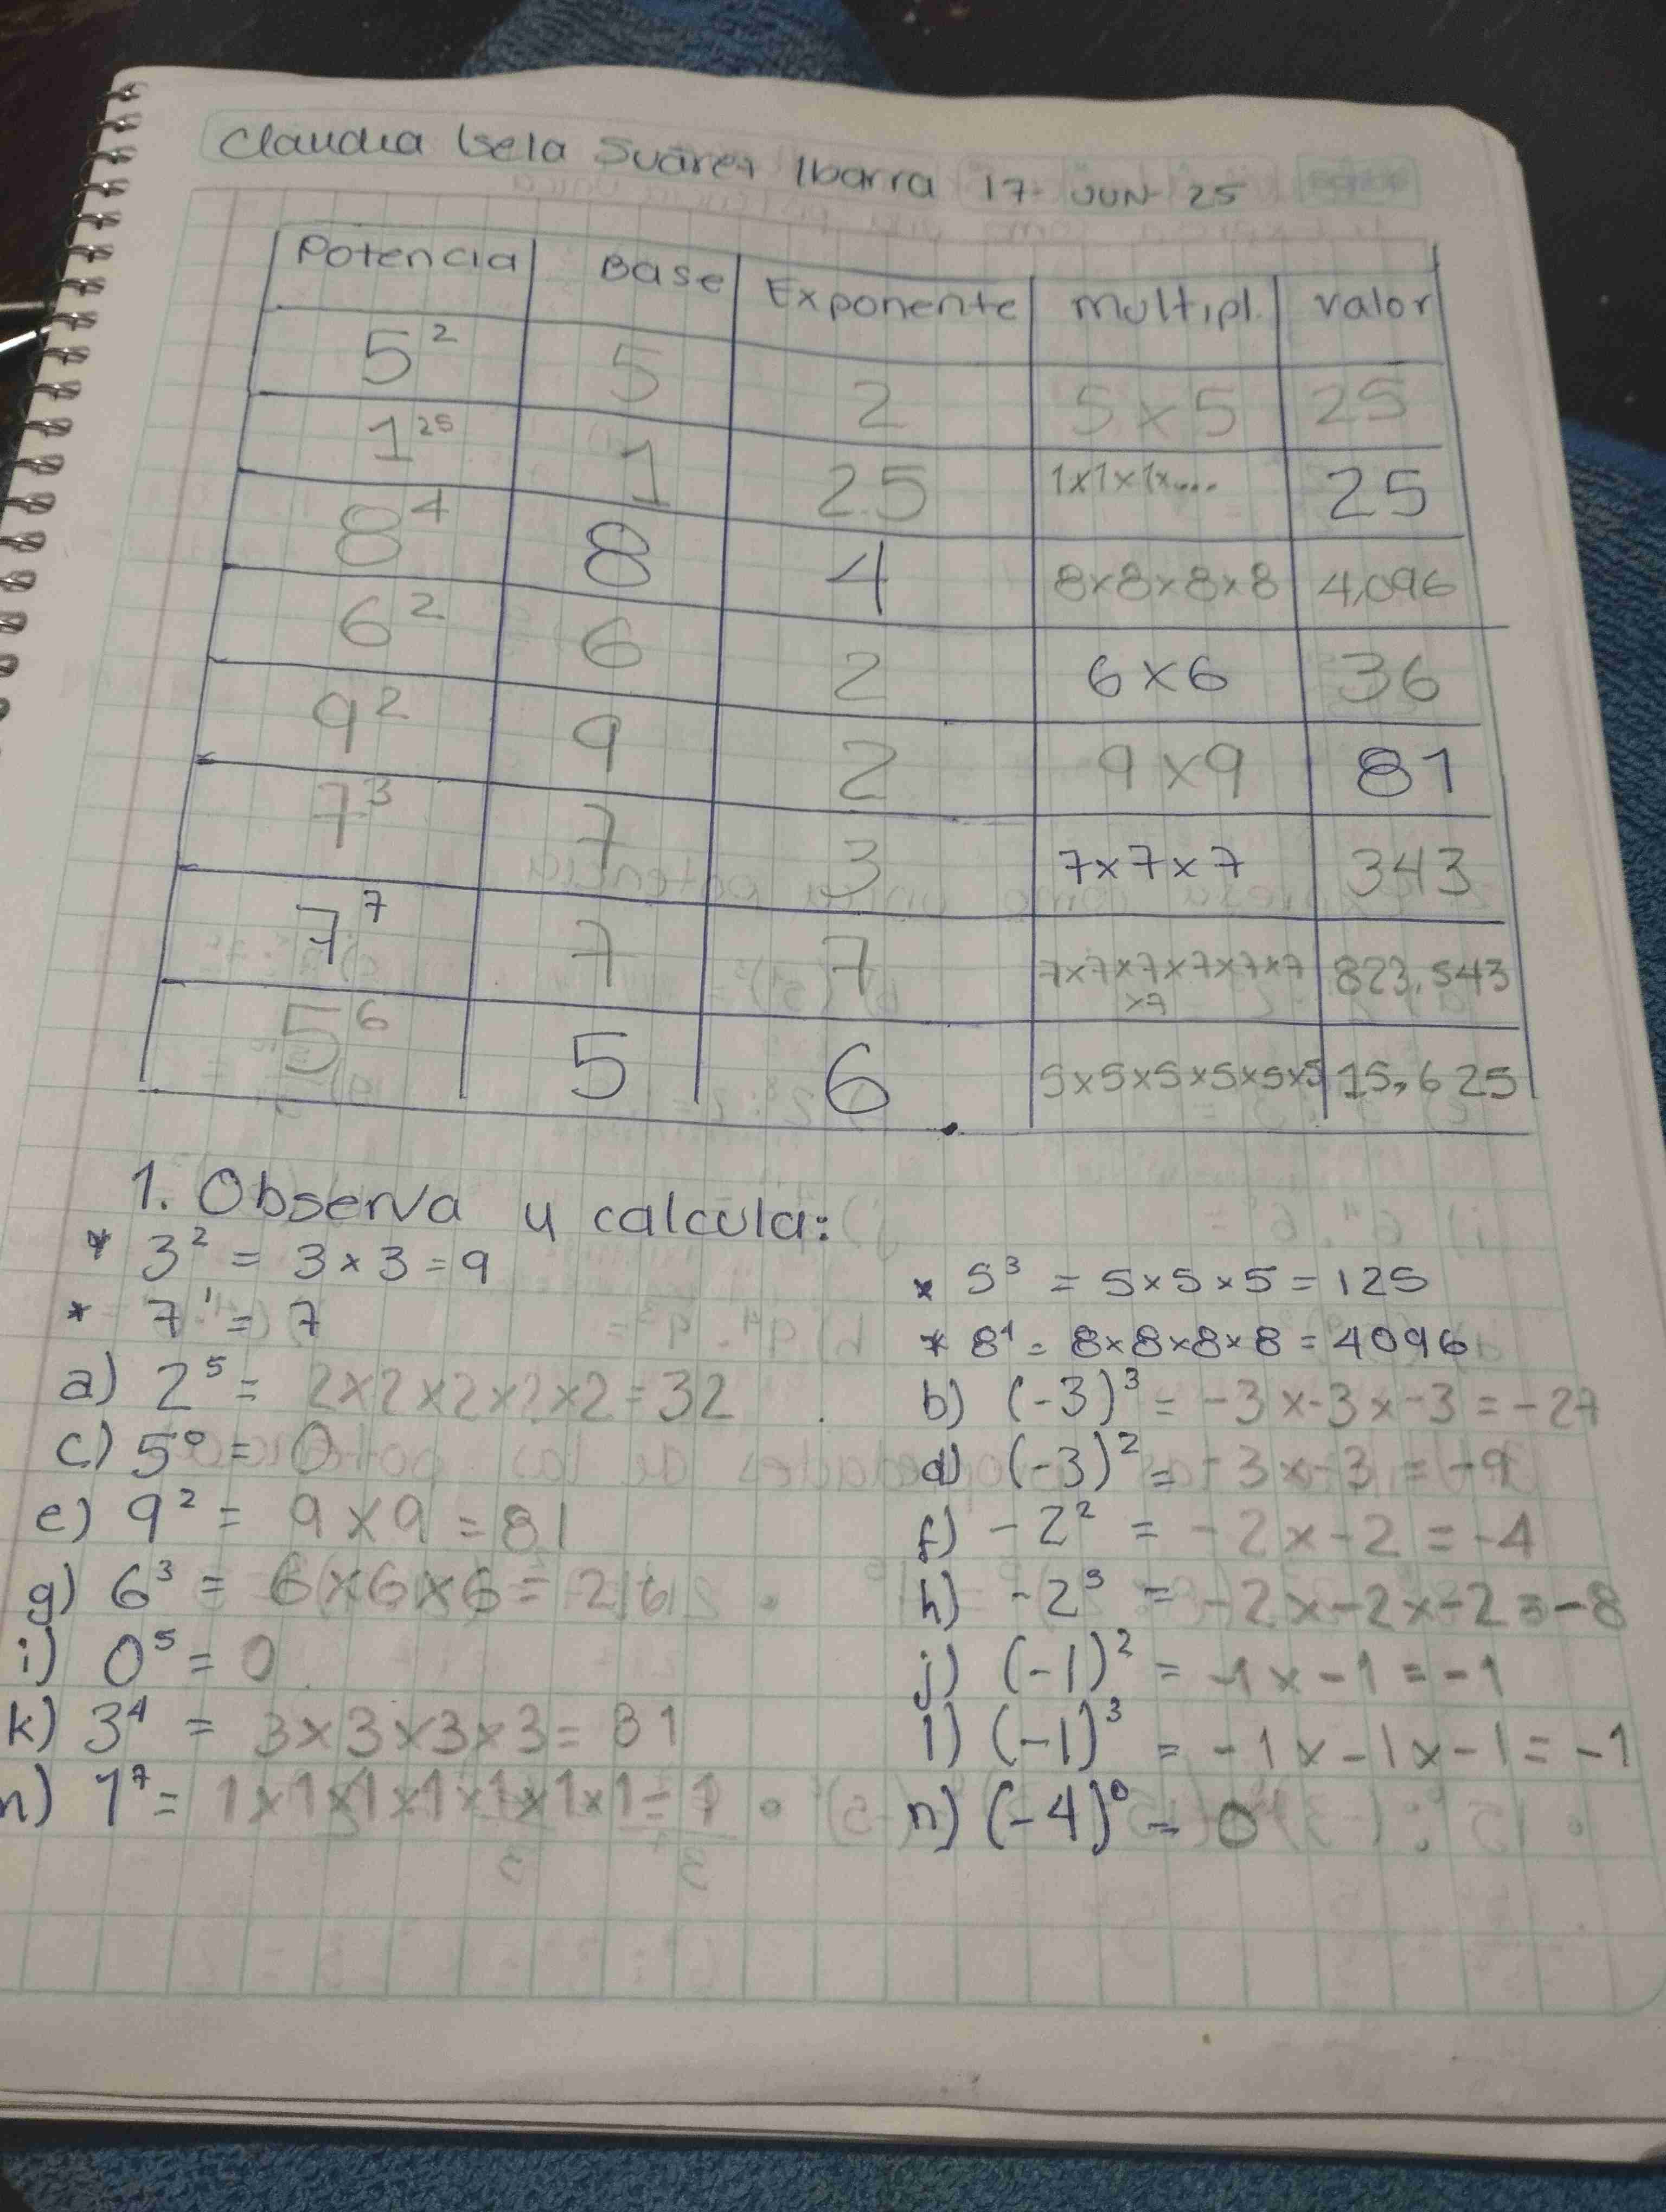 Claudia Isela Suárez Ibarra 17 JUN 25
Potencia Base Exponente multipl. valor
5² 5 2 5 x 5 25
1²⁵ 1 25 1x1x1x.... 25
8⁴ 8 4 8x8x8x8 4,096
6² 6 2 6x6 36
9² 9 2 9x9 81
7³ 7 3 7x7x7 343
7⁷ 7 7 7x7x7x7x7x7x7 823,543
5⁶ 5 6 5x5x5x5x5x5 15,625
1. Observa y calcula:
* 3² = 3x3=9 * 5³ = 5x5x5=125
* 7¹ = 7 * 8⁴ = 8x8x8x8 = 4096
a) 2⁵ = 2x2x2x2x2=32 b) (-3)³ = -3x-3x-3=-27
c) 5⁰ = 0 d) (-3)² = -3x-3 = -9
e) 9² = 9x9=81 f) -2² = -2x-2 = -4
g) 6³ = 6x6x6=216 h) -2³ = -2x-2x-2=-8
i) 0⁵ = 0 j) (-1)² = -1x-1=-1
k) 3⁴ = 3x3x3x3=81 l) (-1)³ = -1x-1x-1=-1
1⁷ = 1x1x1x1x1x1x1=1 n) (-4)⁰ = 0